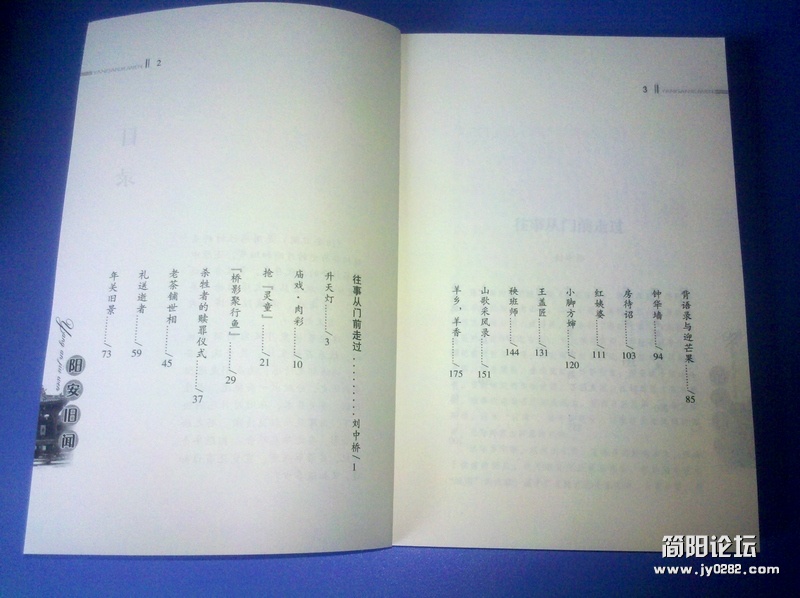 2
往事从门前走过………刘中桥/1
升天灯……/3
庙戏·肉彩……/10
抢『灵童』……/21
『桥影聚行鱼』……/29
杀牲者的赎罪仪式……/37
老茶铺世相……/45
礼送逝者……/59
年关旧景……/73
阳安旧闻
3
背语录与迎芒果……/85
钟华墙……/94
房待诏……/103
红姨婆……/111
小脚方婶……/120
王盖匠……/131
秧班师……/144
山歌采风录……/151
羊乡，羊香……/175
简阳论坛
www.jy0282.com